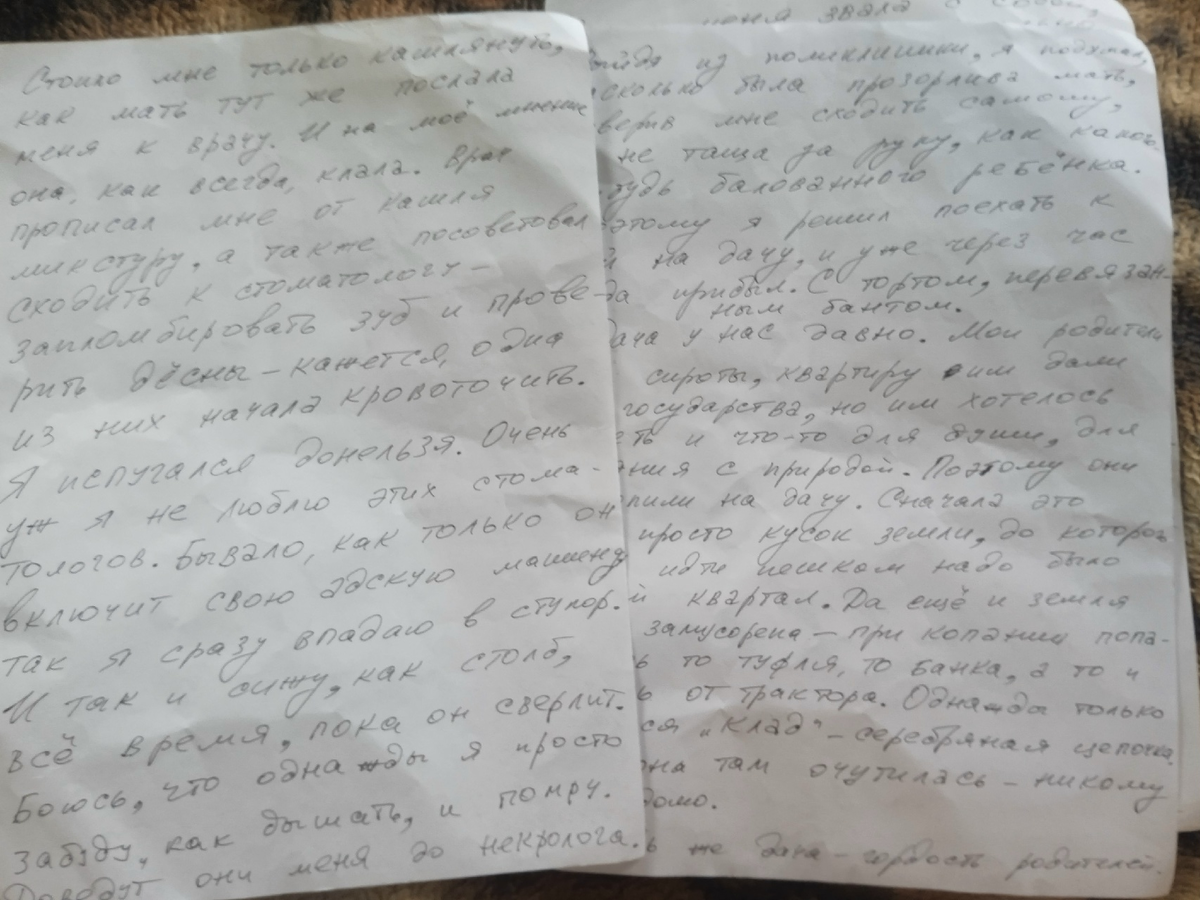 Стоило мне только кашлянуть,
как мать тут же послала
меня к врачу. И на моё мнение
она, как всегда, клала. Врач
прописал мне от кашля
микстуру, а также посоветовал
сходить к стоматологу –
запломбировать зуб и прове-
рить дёсны – кажется, одна
из них начала кровоточить.
Я испугался донельзя. Очень
уж я не люблю этих стома-
тологов. Бывало, как только он
включит свою адскую машину,
так я сразу впадаю в ступор.
И так и сижу, как столб,
всё время, пока он сверлит.
Боюсь, что однажды я просто
забуду, как дышать, и помру.
Доведут они меня до некролога.
меня звала с собой,
из поликлиники, я подумал,
была прозорлива мать,
мне сходить самому,
не таща за руку, как какого-
балованного ребёнка.
я решил поехать к
на дачу, и уже через час
прибыл. С тортом, перевязан-
ным бантом.
у нас давно. Мои родители
сироты, квартиру им дали
государства, но им хотелось
и что-то для души, для
с природой. Поэтому они
на дачу. Сначала это
просто кусок земли, до которой
идти пешком надо было
квартал. Да ещё и земля
замусорена – при копании попа-
то туфля, то банка, а то и
от трактора. Однажды только
"клад" – серебряная цепочка.
там очутилась – никому
же дача – гордость родителей.